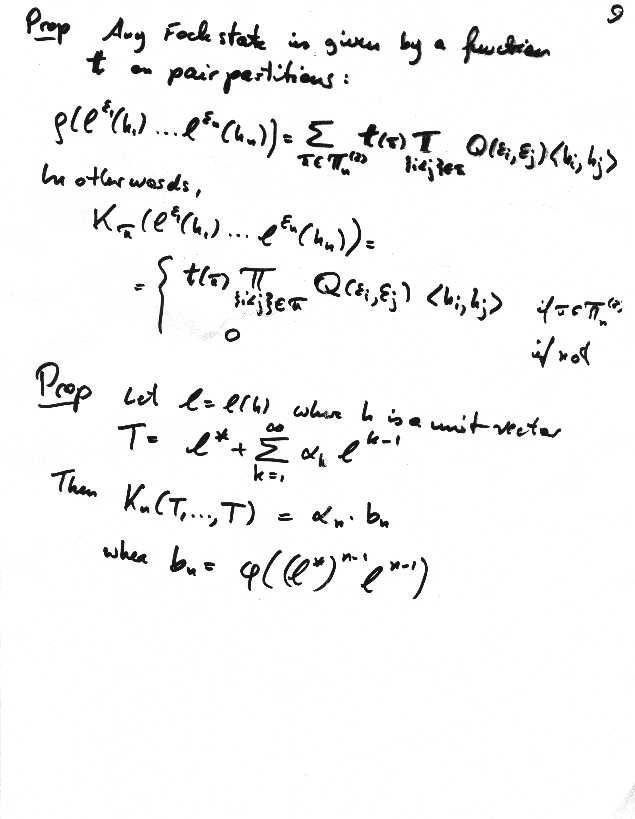 9
Prop Any Fock state is given by a function
t on pair partitions:
ρ(ℓ^{ε₁}(h₁) ... ℓ^{εₙ}(hₙ)) = Σ_{π∈Πₙ^{(2)}} t(π) Π_{{i<j}∈π} Q(εᵢ,εⱼ)⟨hᵢ,hⱼ⟩
In other words,
K_π(ℓ^{ε₁}(h₁) ... ℓ^{εₙ}(hₙ)) =
= { t(π) Π_{{i<j}∈π} Q(εᵢ,εⱼ) ⟨hᵢ,hⱼ⟩ if π∈Πₙ^{(2)}
0 if not
Prop Let ℓ = ℓ(h) where h is a unit vector
T = ℓ* + Σ_{k=1}^{∞} αₖ ℓ^{k-1}
Then Kₙ(T,...,T) = αₙ · bₙ
where bₙ = φ((ℓ*)^{n-1} ℓ^{n-1})